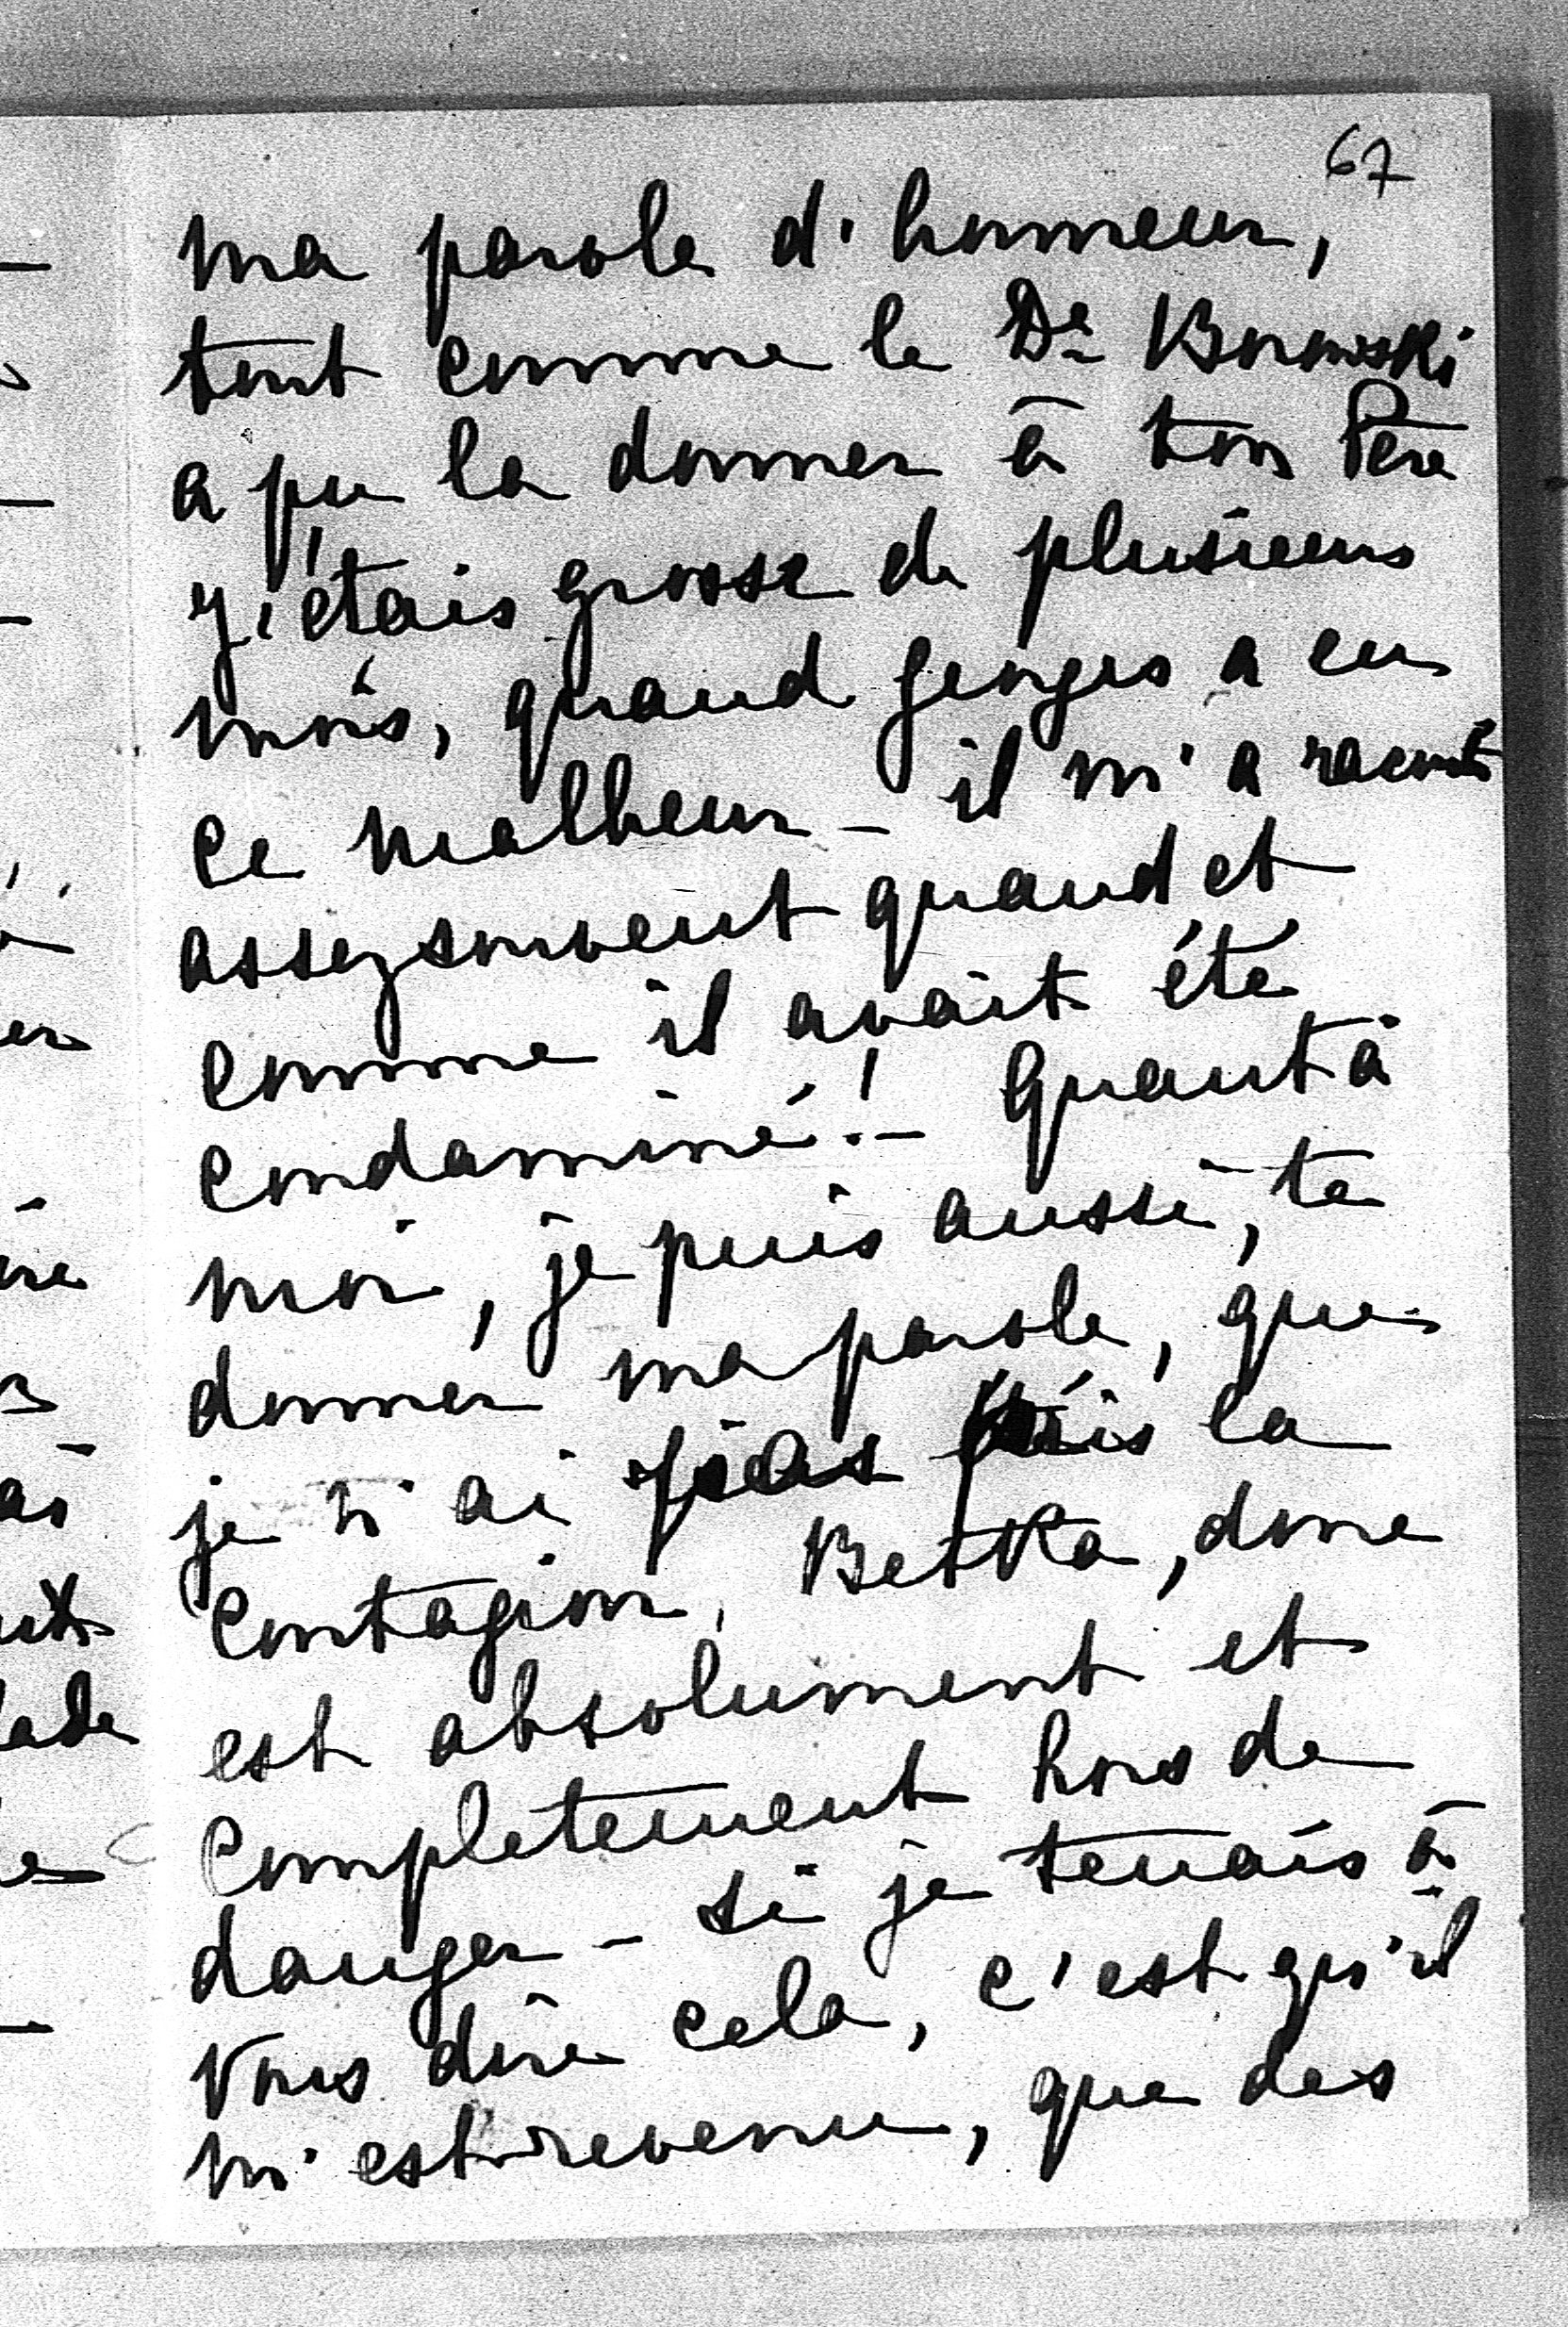 67
ma parole d'honneur,
tout comme le Dr Borowski
a pu la donner à ton Père
j'étais grosse de plusieurs
mois, quand Georges a eu
ce malheur – il m'a raconté
assez souvent quand et
comme il avait été
condaminé! – Quant à
moi, je puis aussi, te
donner ma parole, que
je n'ai pas pris la
contagion, Betka, donc
est absolument et
completement hors de
danger – si je tenais à
vous dire cela, c'est qu'il
m'est revenu, que des